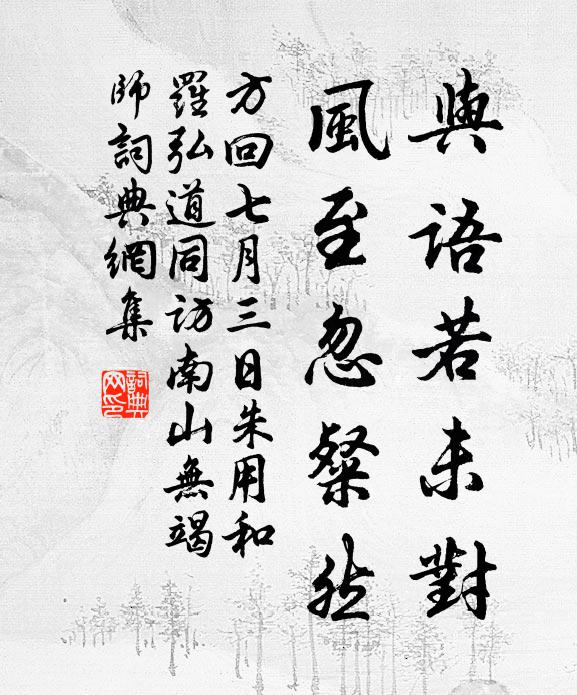 與語若未對
風至忽粲然
方回七月三日朱用和
羅弘道同訪南山無竭
師詞典網集
詞典网印